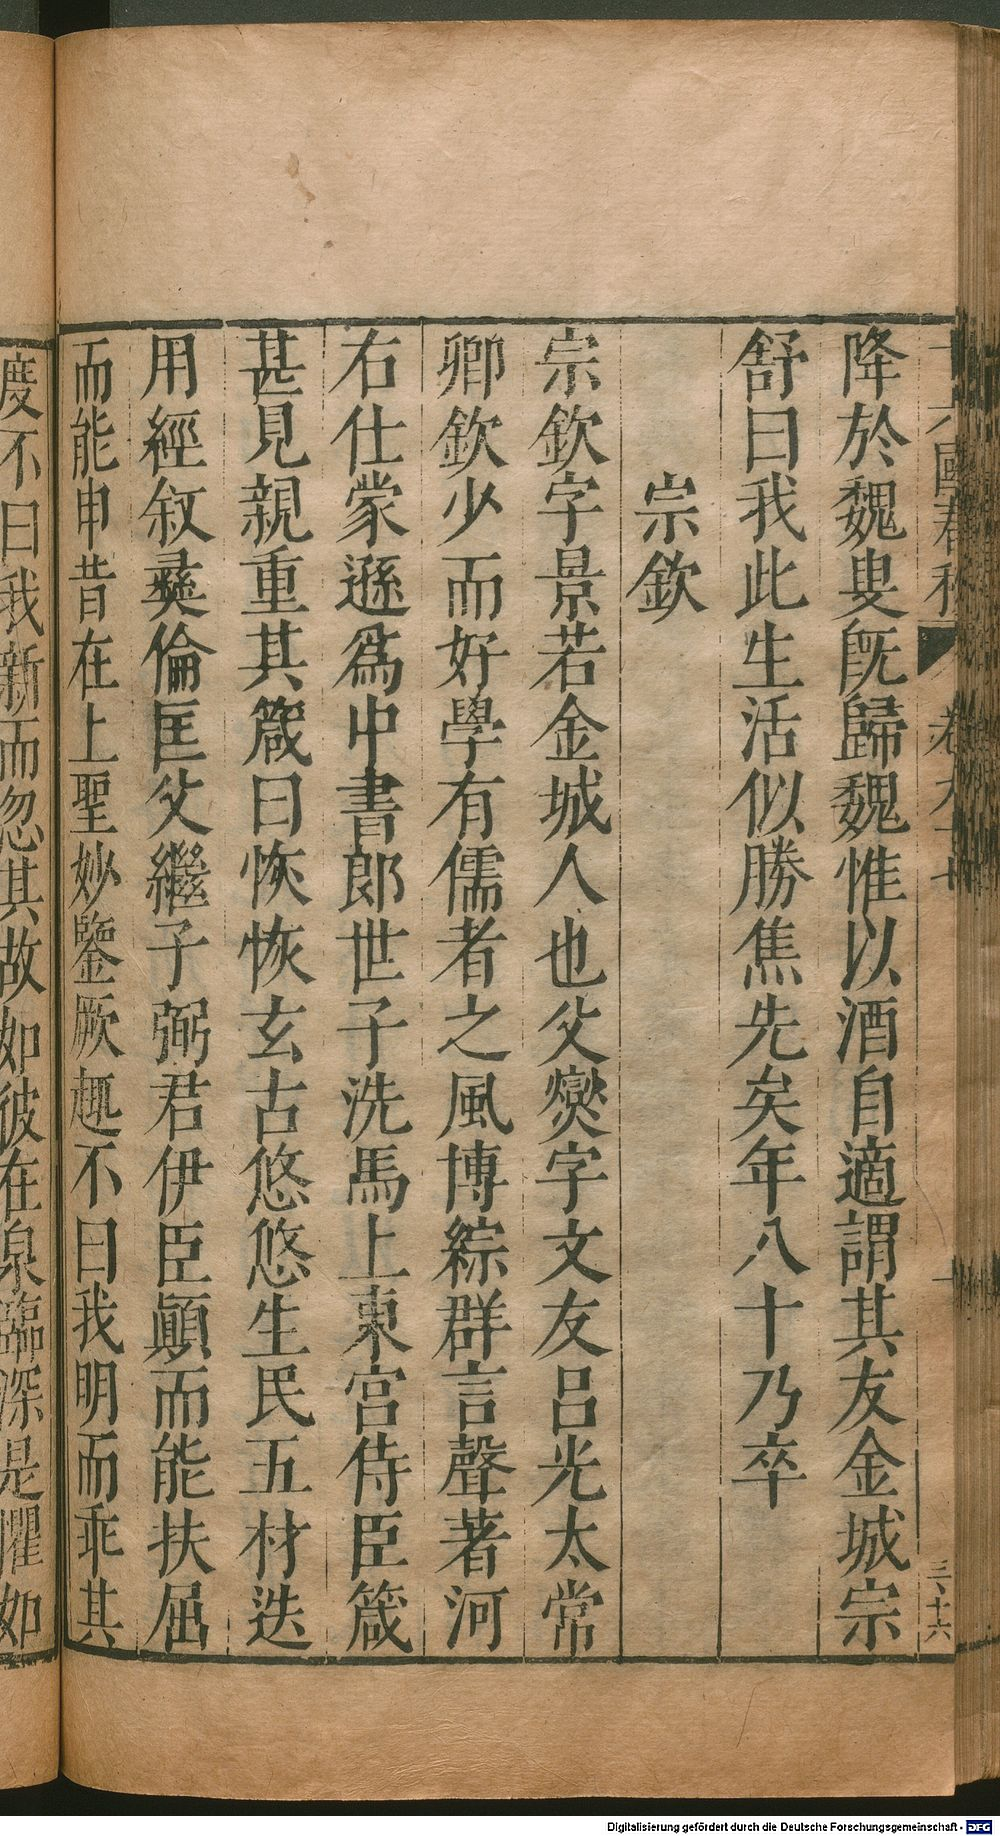 降於魏叟旣歸魏惟以酒自適謂其友金城宗
舒曰我此生活似勝焦先矣年八十乃卒
宗欽
宗欽字景若金城人也父燮字文友呂光太常
卿欽少而好學有儒者之風博綜群言聲著河
右仕蒙遜爲中書郎世子洗馬上東宮侍臣箴
甚見親重其箴曰恢恢玄古悠悠生民五材迭
用經叙彝倫匡父繼子弼君伊臣顚而能扶屈
而能申昔在上聖妙鑒厥趣不曰我明而乖其
度不曰我新而忽其故如彼在泉臨深是懼如
Digitalisierung gefördert durch die Deutsche Forschungsgemeinschaft - DFG